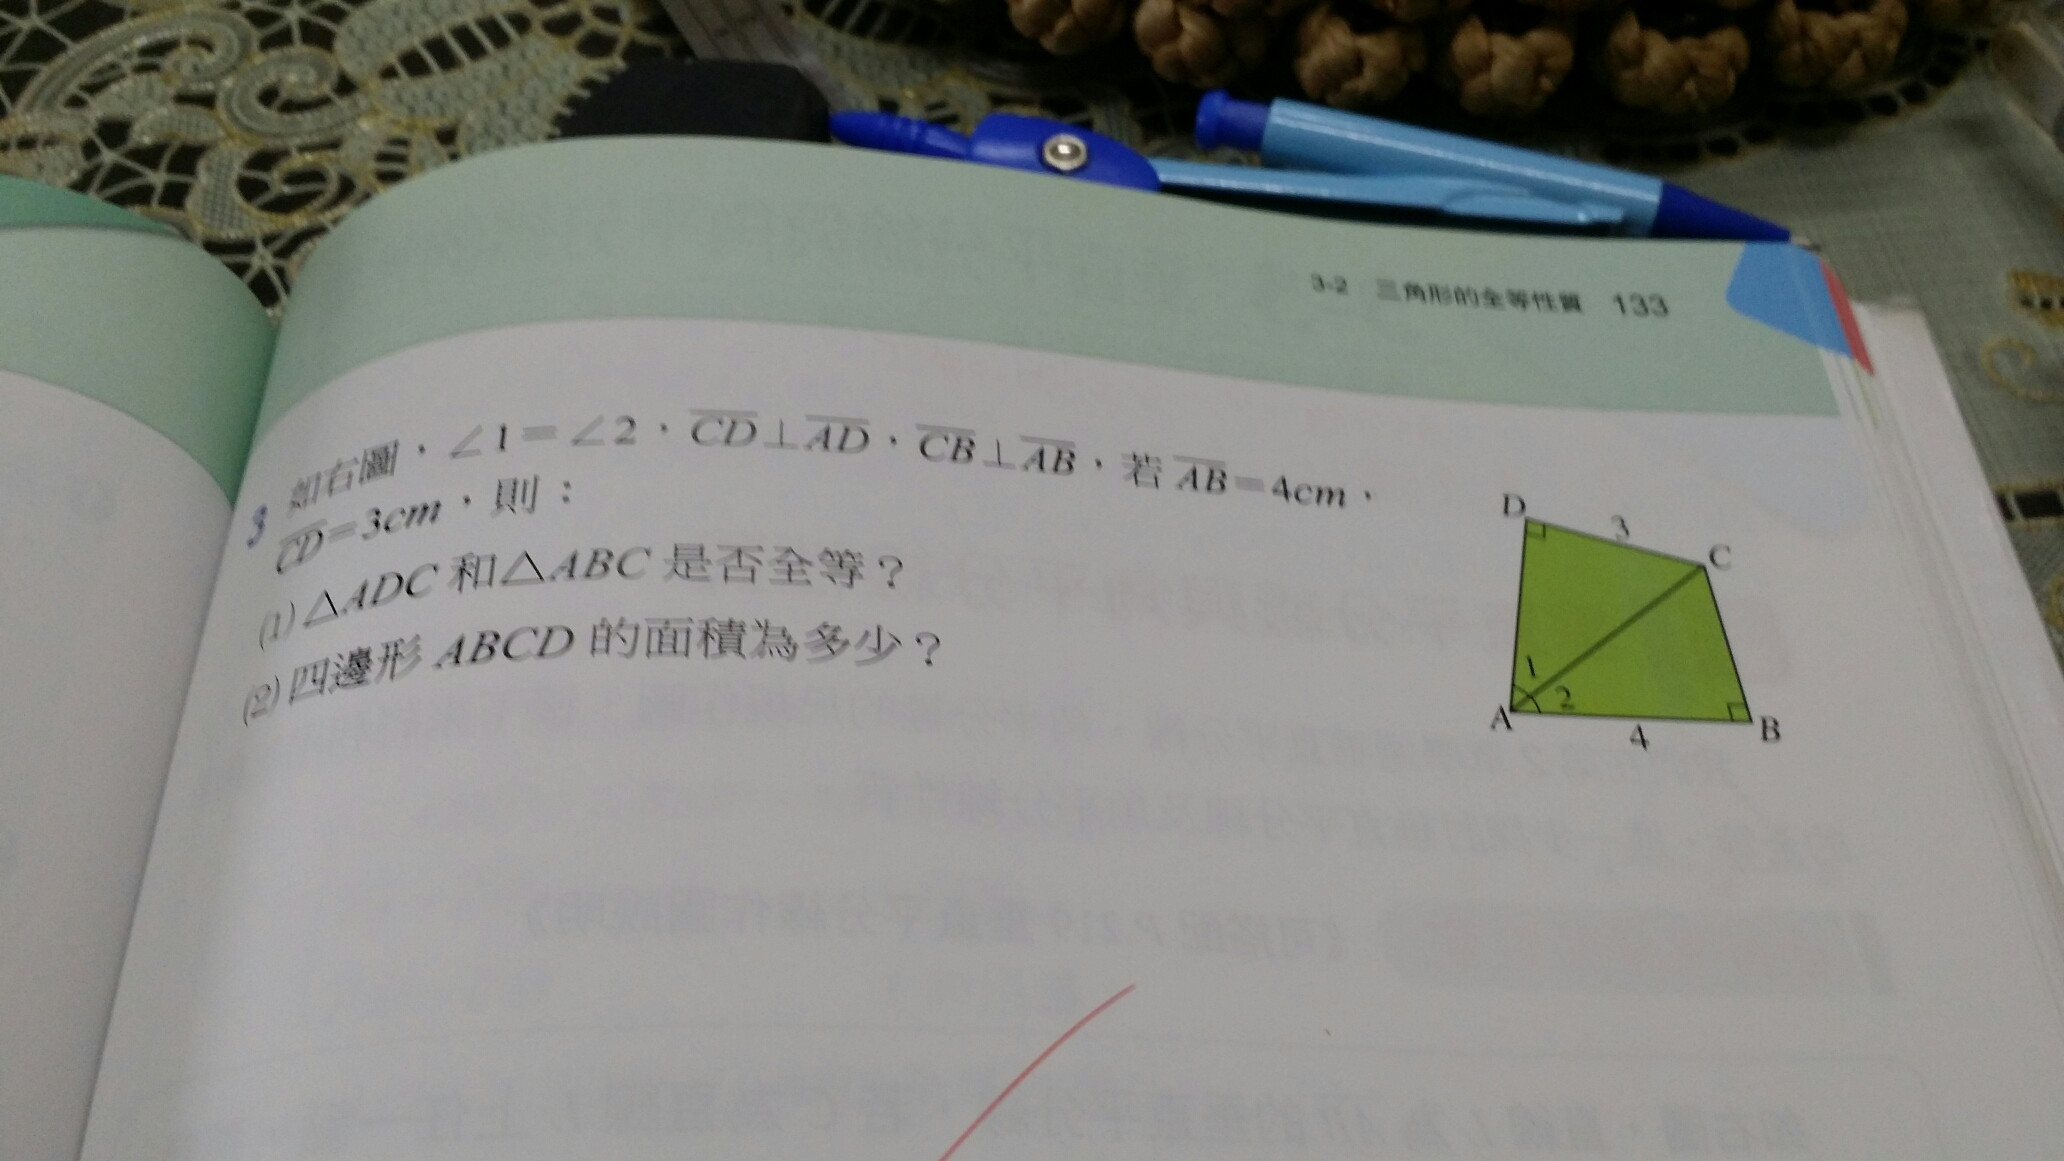 3-2 三角形的全等性質 133
3 如右圖，∠1＝∠2，CD⊥AD，CB⊥AB，若AB＝4cm，
CD＝3cm，則：
(1)△ADC 和△ABC 是否全等？
(2)四邊形 ABCD 的面積為多少？
D
3
C
1
2
A
4
B